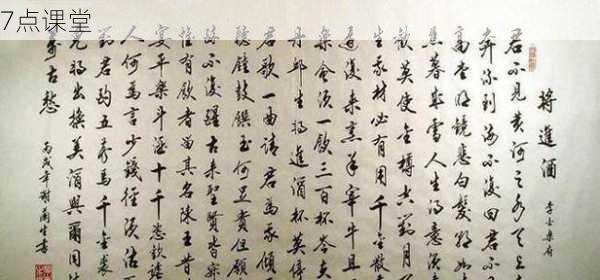 7点课堂
將進酒
李白樂府
君不見黃河之水天上
奔流到海不復回君不
高堂明鏡悲白髮朝如
暮成雪人生得意
歡莫使金樽空對月
生我材必有用千金散
還復來烹羊宰牛且
樂會須一飲三百杯岑夫
丹邱生將進酒杯莫
君歌一曲請君為我傾
聽鐘鼓饌玉何足貴但願
醉不復醒古來聖賢皆
惟有飲者留其名陳王昔
宴平樂斗酒十千恣歡謔
人何為言少錢徑須沽
對君酌五花馬千金裘
兒將出換美酒與爾同銷
萬古愁